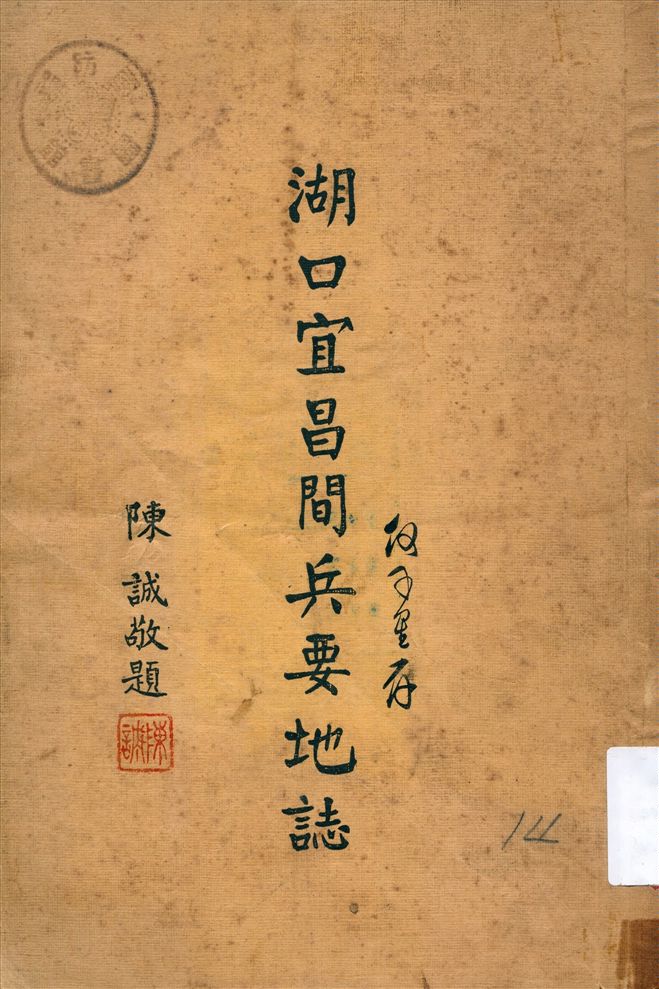 湖口宜昌間兵要地誌
陳誠敬題
陳誠
14